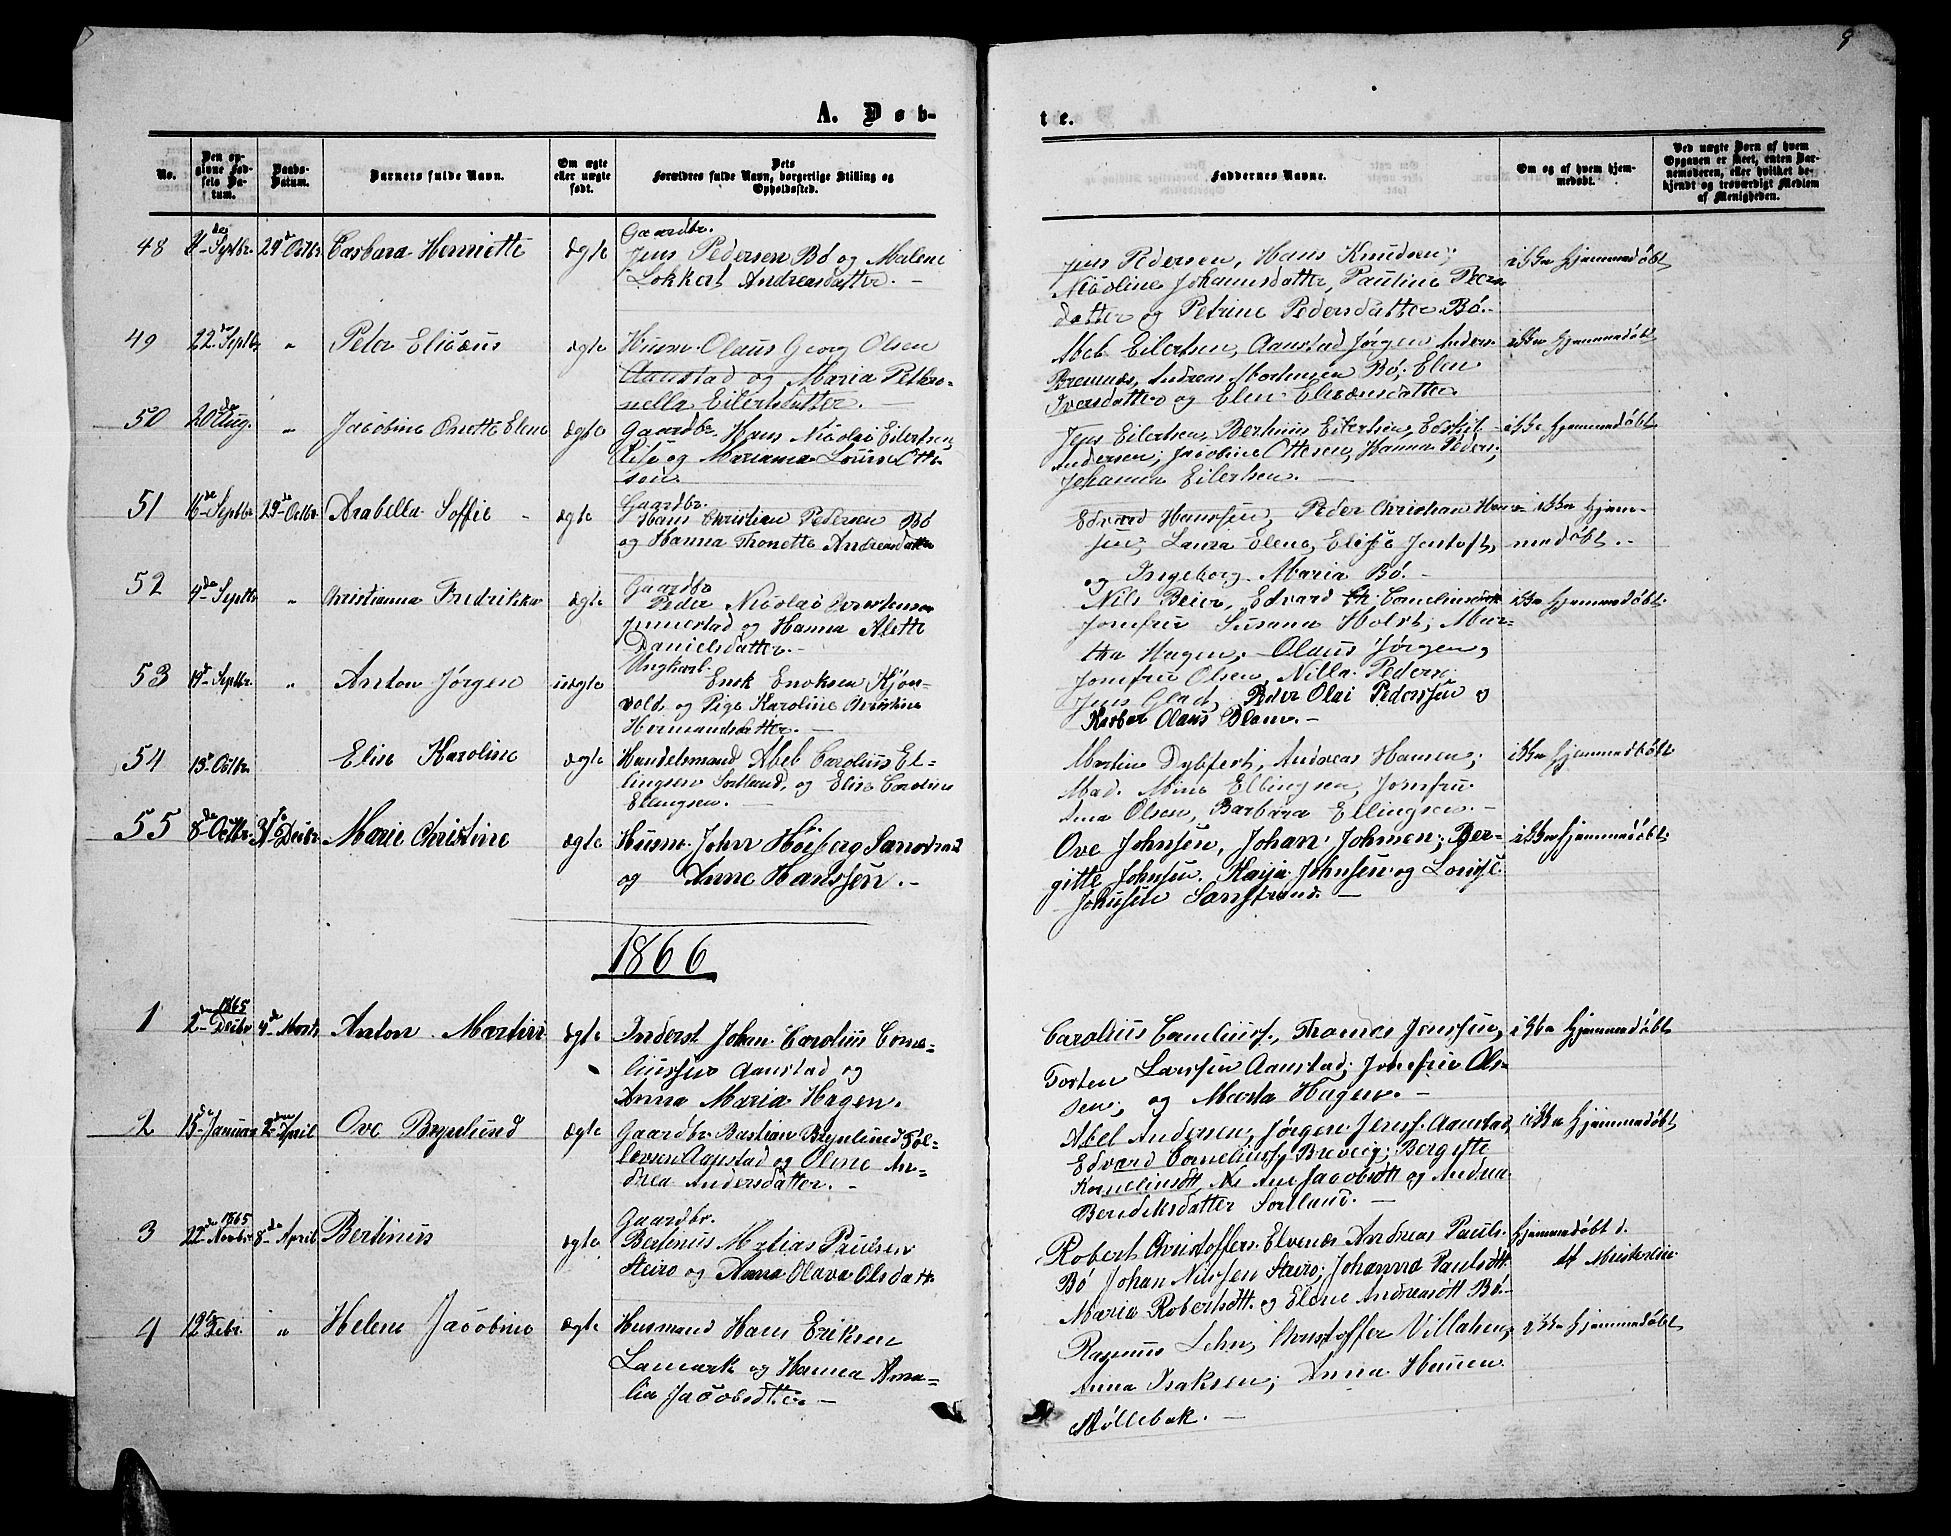 8
A. Døb-
te.
No.
Den opgivne Fødsels Datum.
Daabs-Datum.
Barnets fulde Navn.
Om ægte eller uægte født.
Dets Forældres fulde Navn, borgerlige Stilling og Opholdssted.
Faddernes Navne.
Om og af hvem hjemmedøbt.
Ved uægte Børn af hvem Opgaven er skeet, enten Barnemoderen, eller hvilket bekjendt og troværdigt Medlem af Menigheden.
48 Septbr. 29de Octbr. Barbara Henriette ægte Gaardbr.
Jens Pedersen Bö og Malene
Lokkert Andreasdatter. —
Jens Pedersen, Hans Knudsen,
Nicoline Johannsdatter, Pauline Peer
datter og Petrine Pedersdatter Bö. —
ikke hjemmedöbt
49 22de Septbr. „ Peter Elisæus ægte Husm. Olaus Georg Olsen
Aanstad og Maria Petro-
nella Eilertsdatter. —
Abel Eilertsen, Aanstad Jörgen Anders.
Bremnæs, Andreas Mortensen Bö, Elen
Iversdatter og Elen Elisæusdatter
ikke hjemmedöbt
50 20de Aug. „ Jacobine Elene ægte Gaardbr. Hans Nicolai Eilertsen
og Mariana Louise Otte-
sen.
Jens Eilertsen, Bertinus Eilertsen,
Andersen; Jacobine Ottesen, Hanna Peders;
Johanna Eilertsen. —
ikke hjemmedöbt
51 16de Septbr. 29de Octbr. Arabella Soffie ægte Gaardbr.
Hans Christian Pedersen Bö
og Hanna Thonette Andreasdatter
Edvard Hanssen, Peder Christian Hans-
sen, Laura Elene, Elise Jentoft,
og Ingeborg Maria Bö. —
ikke hjem-
medöbt. —
52 4de Septbr. „ Christianna Fredrikke ægte Gaardbr
Peder Nicolai
Jennestad og Hanna Alette
Danielsdatter. —
Nils Beier, Edvard
Jomfru Susana Holst, Mar-
tha Hagen; Olaus Jörgen,
ikke hjemmedöbt.
53 19de Septbr. „ Anton Jörgen uægte Ungkarl.
Enok Enoksen Kjon-
vold, og Pige Karoline Christine
Hermandsdatter. —
Jomfru Olsen, Nilla Peders.
Jens Glad, Peder Olai Pedersen og
Olaus Blam. —
54 13. Octbr. Elise Karoline ægte Handelsmand Abel Carolius El-
lingsen Sortland, og Elise Caroline
Ellingsen. —
Martin Dybfert, Andreas Hansen;
Mad. Mine Ellingsen, Jomfru
Ana Olsen, Barbara Ellingsen. —
ikke hjemmedöbt
55 8de Octbr. 31te Decbr. Marie Christine ægte Husm. John Höiberg Sandstrand
og Anne Hanssen. —
Ove Johnsen, Johan Johnsen; Ber-
gitte Johnsen. Kaija Johnsen og Lovise
Johnsen Sanstrand. —
ikke hjemmedöbt.
1866
1 1865
2den Decbr. 4de Marts Anton Martin ægte Inderst Johan Carolius Corne-
liussen Aanstad og
Anna Maria Hagen.
Carolius Corneliusf., Thomas Jonssen,
Torsten Larssen Aanstad; Jomfrue Ol-
sen; og Marta Hagen. —
ikke hjemmedöbt
2 13de Januar 2den April Ove Brynlund ægte Gaardbr. Bastian Brynlund Tol-
levsen Aanstad og Oline An-
drea Andersdatter. —
Abel Andersen, Jörgen Jensf. Aanstad,
Edvard Corneliusf. Breivig; Bergitte
Korneliusdtt, Ane Jacobsdtt og Andrea
Benediktsdatter Sortland. —
ikke hjemmedöbt
3 1865
22de Novbr. 8de April Bertinius ægte Gaardbr.
Bertinius Matias Paulsen
Steiro og Anna Olava Olsdatt.
Robert Christoffers. Elvenæs Andreas Pauls.
Bö Johan Nilssen Steiro; Johanna Paulsdtt.
Maria Robertsdtt. og Elene Andreasdtt Bö. —
Hjemmedöbt d.
4 12te Febr. „ Helene Jacobine ægte Husmand Hans Eriksen
Lamark og Hanna Ama-
lia Jacobsdtter. —
Rasmus Lehn, Christoffer Villahen;
Anna Isaksen; Anna Hansen
Möllebak. —
ikke hjemmedöbt